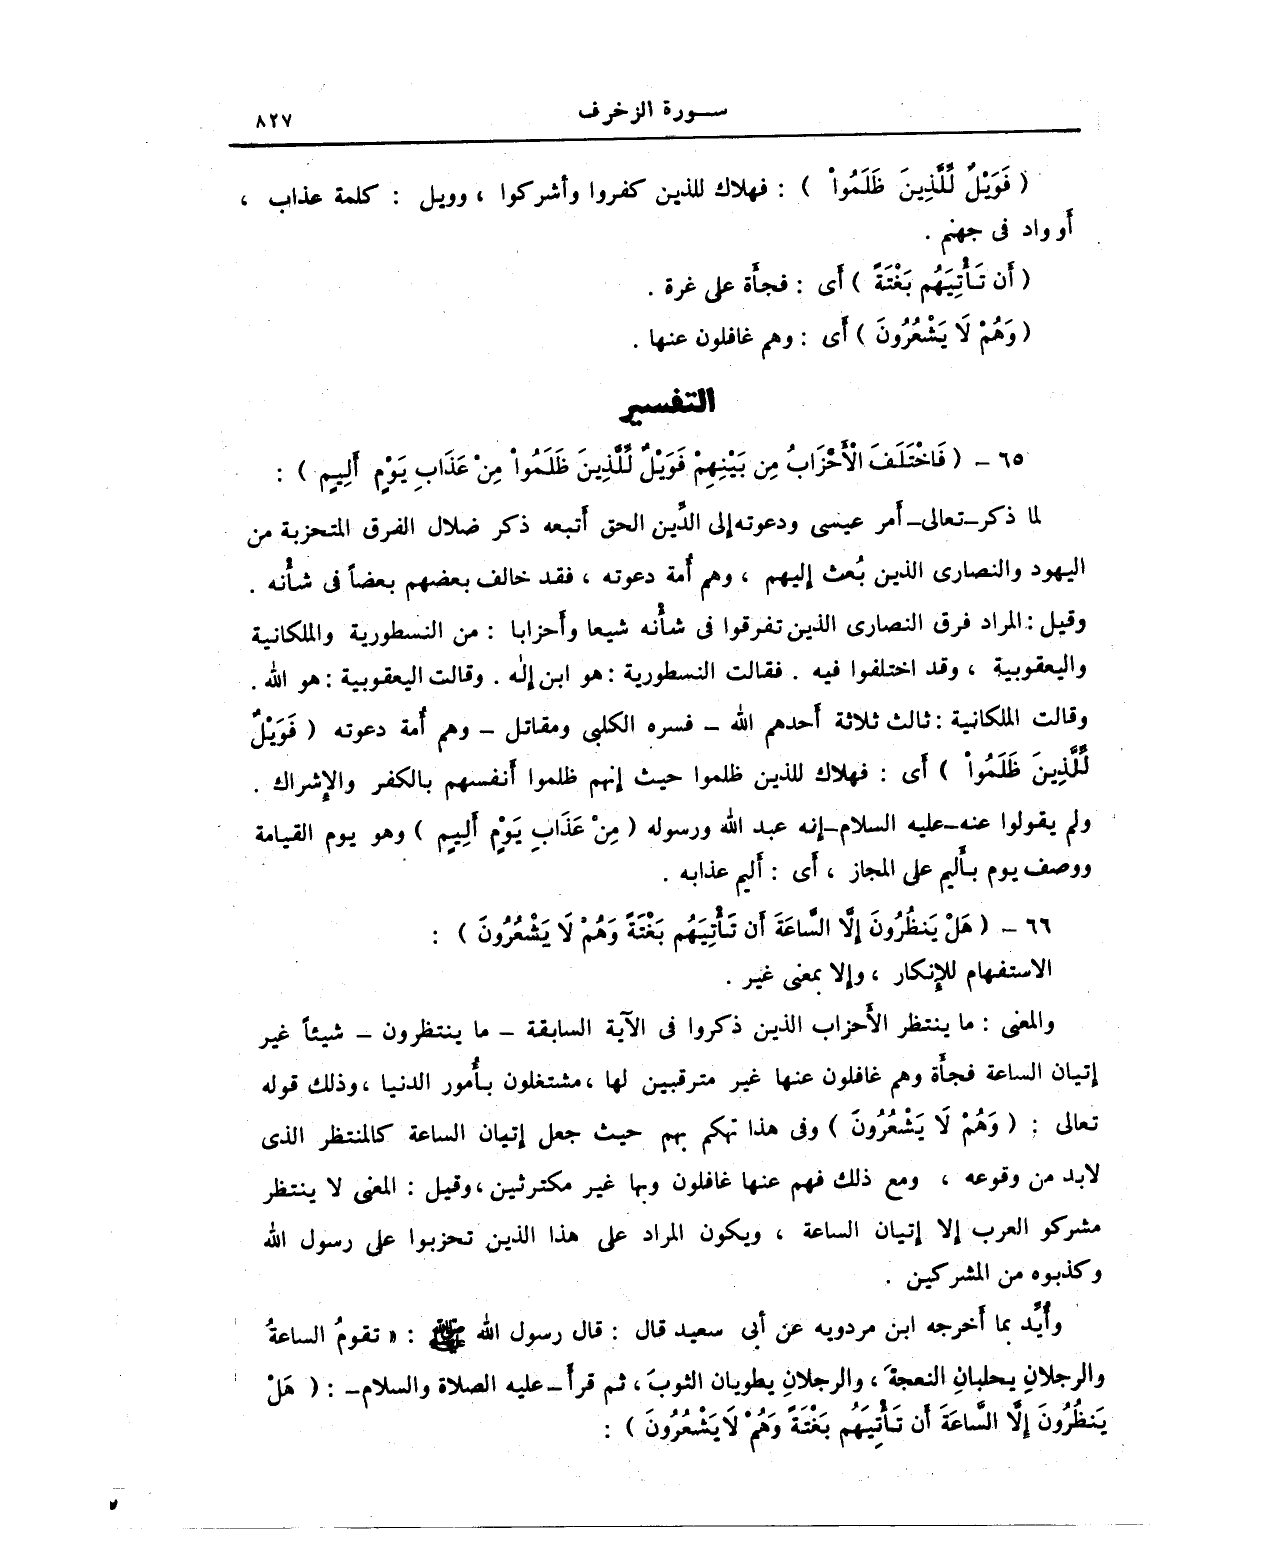 سورة الزخرف ٨٢٧
( فَوَيْلٌ لِّلَّذِينَ ظَلَمُواْ ) : فهلاك للذين كفروا وأشركوا ، وويل : كلمة عذاب ،
أو واد فى جهنم .
( أَن تَأْتِيَهُم بَغْتَةً ) أَى : فجأَة على غرة .
( وَهُمْ لَا يَشْعُرُونَ ) أَى : وهم غافلون عنها .
التفسير
٦٥ – ( فَاخْتَلَفَ الْأَحْزَابُ مِن بَيْنِهِمْ فَوَيْلٌ لِّلَّذِينَ ظَلَمُواْ مِنْ عَذَابِ يَوْمٍ أَلِيمٍ ) :
لما ذكر–تعالى–أَمر عيسى ودعوته إلى الدِّين الحق أَتبعه ذكر ضلال الفرق المتحزبة من
اليهود والنصارى الذين بُعث إليهم ، وهم أُمة دعوته ، فقد خالف بعضهم بعضاً فى شأْنه .
وقيل : المراد فرق النصارى الذين تفرقوا فى شأْنه شيعا وأَحزابا : من النسطورية والملكانية
واليعقوبية ، وقد اختلفوا فيه . فقالت النسطورية : هو ابن إلٰه . وقالت اليعقوبية : هو الله .
وقالت الملكانية : ثالث ثلاثة أَحدهم الله – فسره الكلبى ومقاتل – وهم أُمة دعوته ( فَوَيْلٌ
لِّلَّذِينَ ظَلَمُواْ ) أَى : فهلاك للذين ظلموا حيث إنهم ظلموا أَنفسهم بالكفر والإشراك .
ولم يقولوا عنه–عليه السلام–إنه عبد الله ورسوله ( مِنْ عَذَابِ يَوْمٍ أَلِيمٍ ) وهو يوم القيامة
ووصف يوم بأَليم على المجاز ، أَى : أَليم عذابه .
٦٦ – ( هَلْ يَنظُرُونَ إِلَّا السَّاعَةَ أَن تَأْتِيَهُم بَغْتَةً وَهُمْ لَا يَشْعُرُونَ ) :
الاستفهام للإِنكار ، وإلا بمعنى غير .
والمعنى : ما ينتظر الأَحزاب الذين ذكروا فى الآية السابقة – ما ينتظرون – شيئاً غير
إتيان الساعة فجأَة وهم غافلون عنها غير مترقبين لها ، مشتغلون بأُمور الدنيا ، وذلك قوله
تعالى : ( وَهُمْ لَا يَشْعُرُونَ ) وفى هذا تهكم بهم حيث جعل إتيان الساعة كالمنتظر الذى
لابد من وقوعه ، ومع ذلك فهم عنها غافلون وبها غير مكترثين ، وقيل : المعنى لا ينتظر
مشركو العرب إلا إتيان الساعة ، ويكون المراد على هذا الذين تحزبوا على رسول الله
وكذبوه من المشركين .
وأُيِّد بما أَخرجه ابن مردويه عن أَبى سعيد قال : قال رسول الله ﷺ : « تقومُ الساعةُ
والرجلانِ يحلبانِ النعجةَ ، والرجلانِ يطويان الثوبَ ، ثم قرأَ–عليه الصلاة والسلام– : ( هَلْ
يَنظُرُونَ إِلَّا السَّاعَةَ أَن تَأْتِيَهُم بَغْتَةً وَهُمْ لَا يَشْعُرُونَ ) :